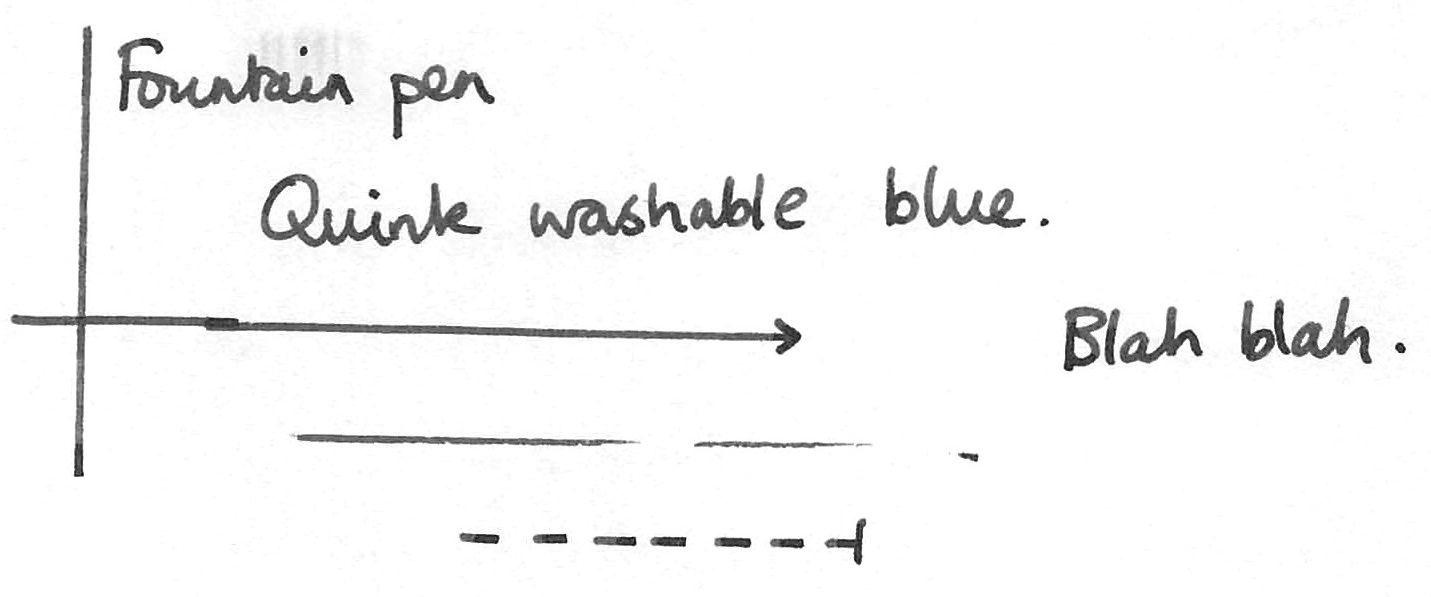 Fountain pen
Quink washable blue.
Blah blah.